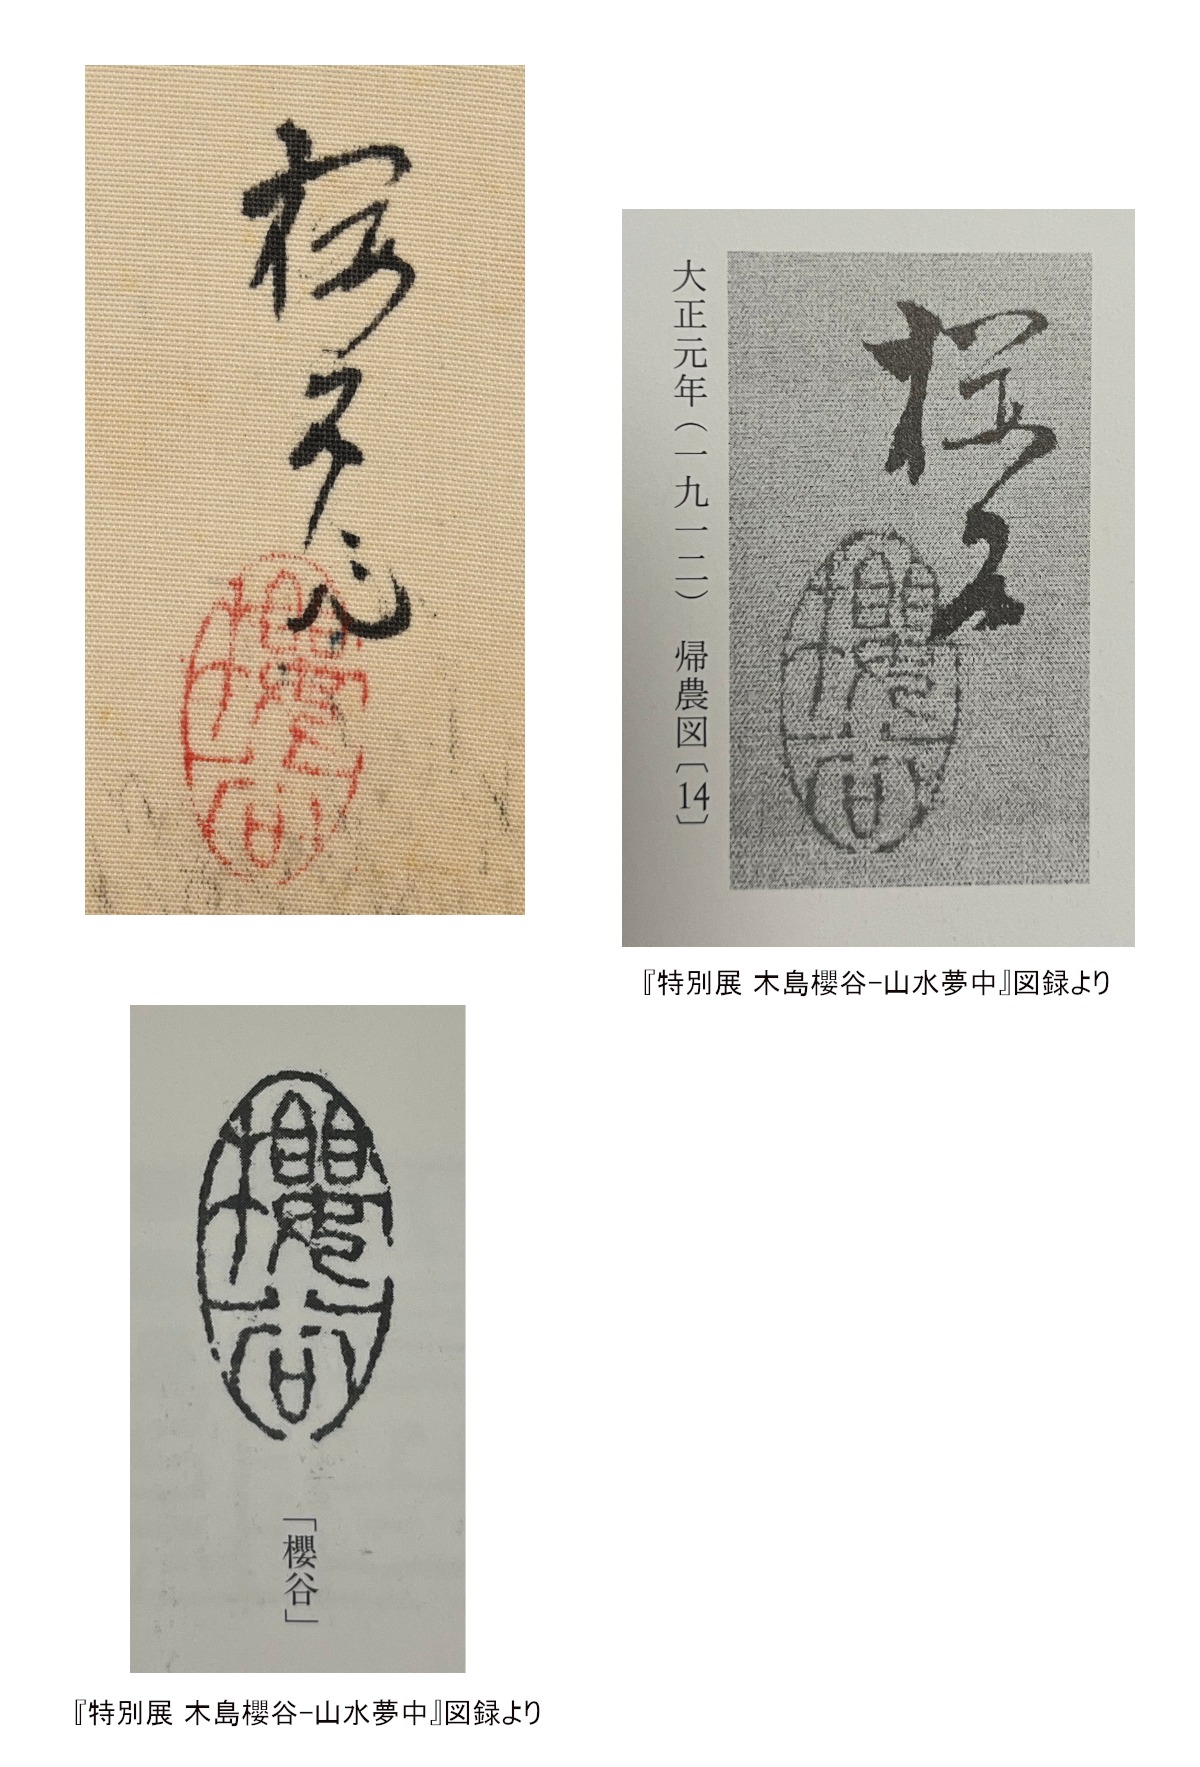 櫻谷
大正元年（一九一二） 帰農図〔14〕
櫻谷
『特別展 木島櫻谷-山水夢中』図録より
櫻谷
「櫻谷」
『特別展 木島櫻谷-山水夢中』図録より